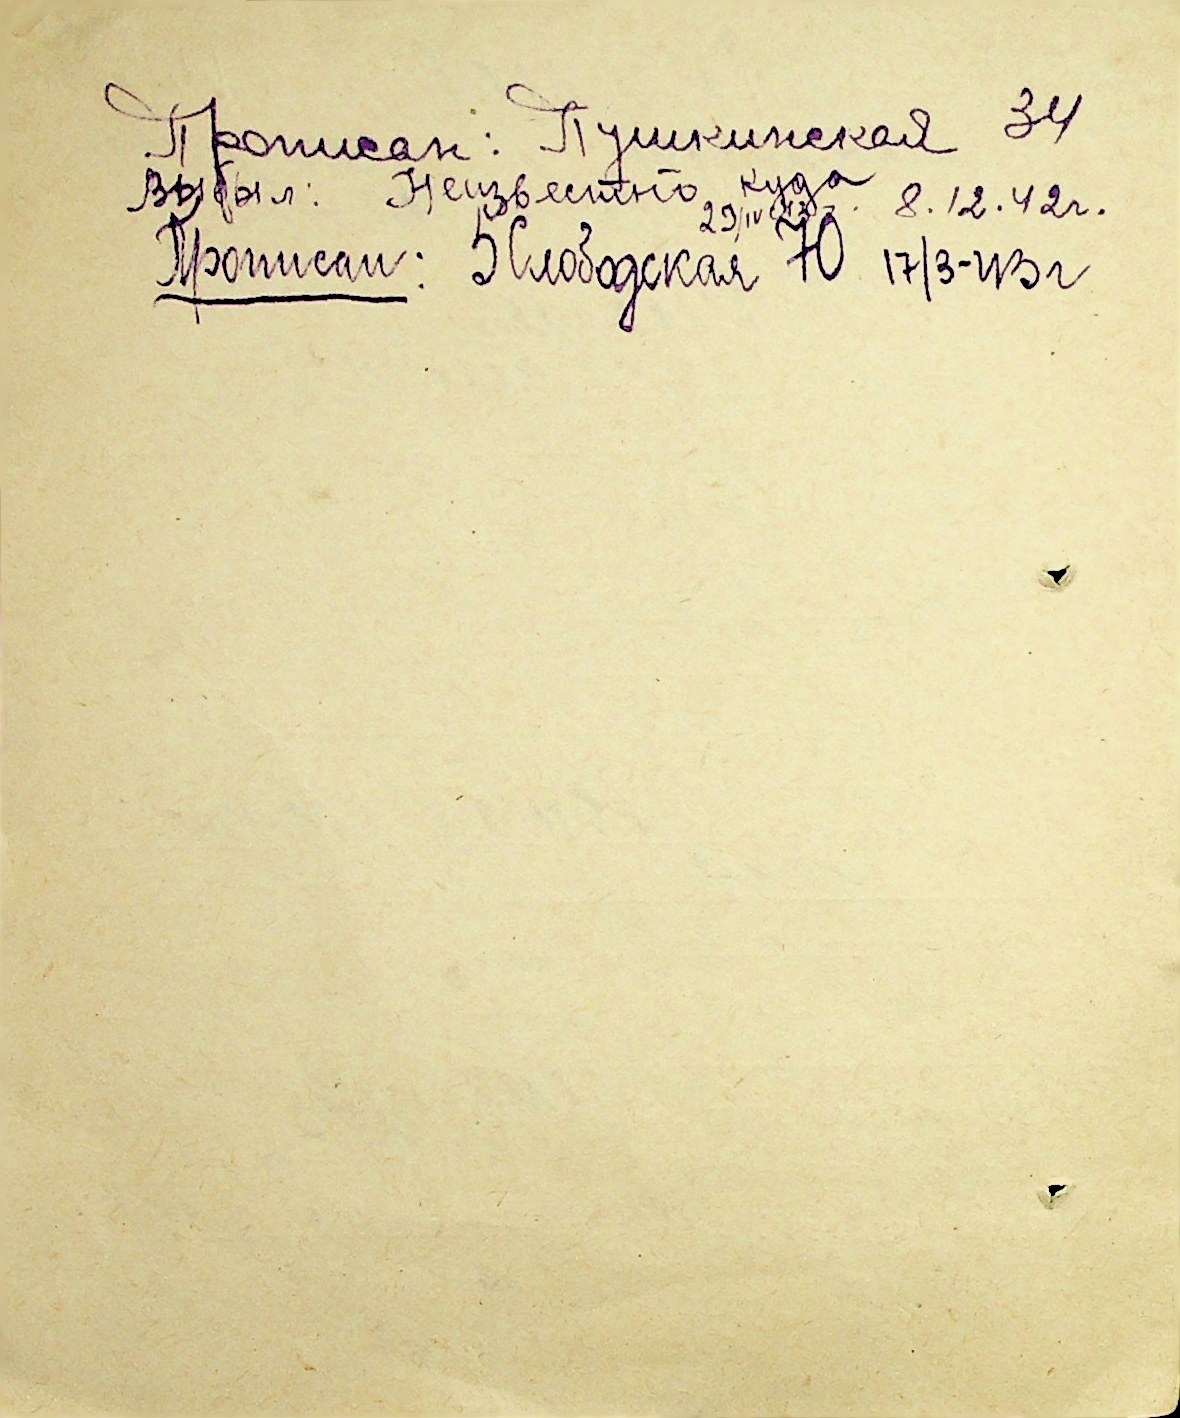 Прописан: Пушкинская 34
Выбыл: Неизвестно куда 8.12.42г.
29/IV 43 г.
Прописан: Слободская 17/3-43г